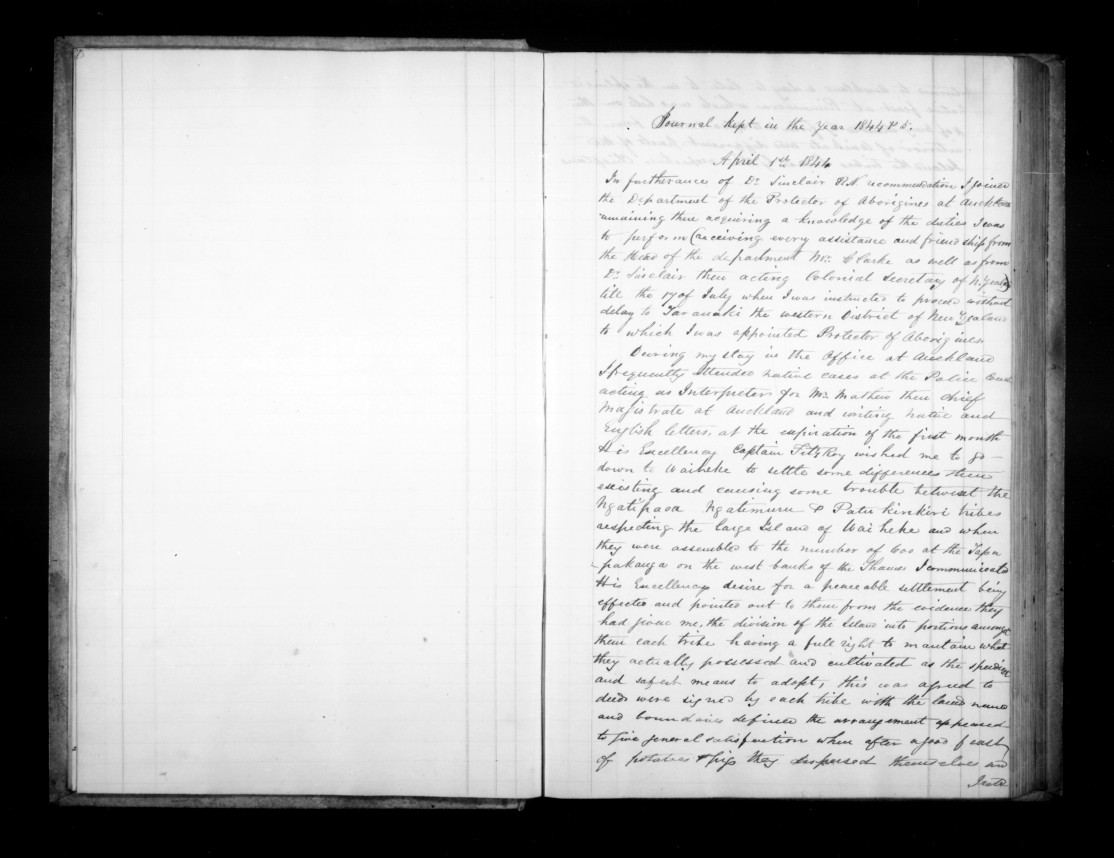 Journal kept in the Year 1844 & 5.
April 1st 1844
In furtherance of Dr Sinclair R.N. recommendation I joined
the Department of the Protector of Aborigines at Auckland
remaining there acquiring a knowledge of the duties I was
to perform (receiving every assistance and friendship from
the Head of the department Mr. Clarke as well as from
Dr. Sinclair then acting Colonial Secretary of N. Zealand)
till the 17 of July when I was instructed to proceed without
delay to Taranaki the western District of New Zealand
to which I was appointed Protector of Aborigines.
During my stay in the Office at Auckland
I frequently attended native cases at the Police Court
acting as Interpreter for Mr. Mathew then chief
Magistrate at Auckland and writing native and
English letters, at the expiration of the first month
His Excellency Captain FitzRoy wished me to go
down to Waiheke to settle some differences then
existing and causing some trouble betwixt the
Ngatipaoa Ngatimuru & Patukirikiri tribes
respecting the large Island of Waiheke and when
they were assembled to the number of 600 at the Tapu
pakanga on the west banks of the Thames I communicated
His Excellencys desire for a peaceable settlement being
effected and pointed out to them from the evidence they
had given me, the division of the Island into portions amongst
them each tribe having a full right to maintain what
they actually possessed and cultivated as the speediest
and safest means to adopt, this was agreed to
deeds were signed by each tribe with the land name
and boundaries defined the arrangement appeared
to give general satisfaction when after a good feast
of potatoes & pigs they dispersed themselves and